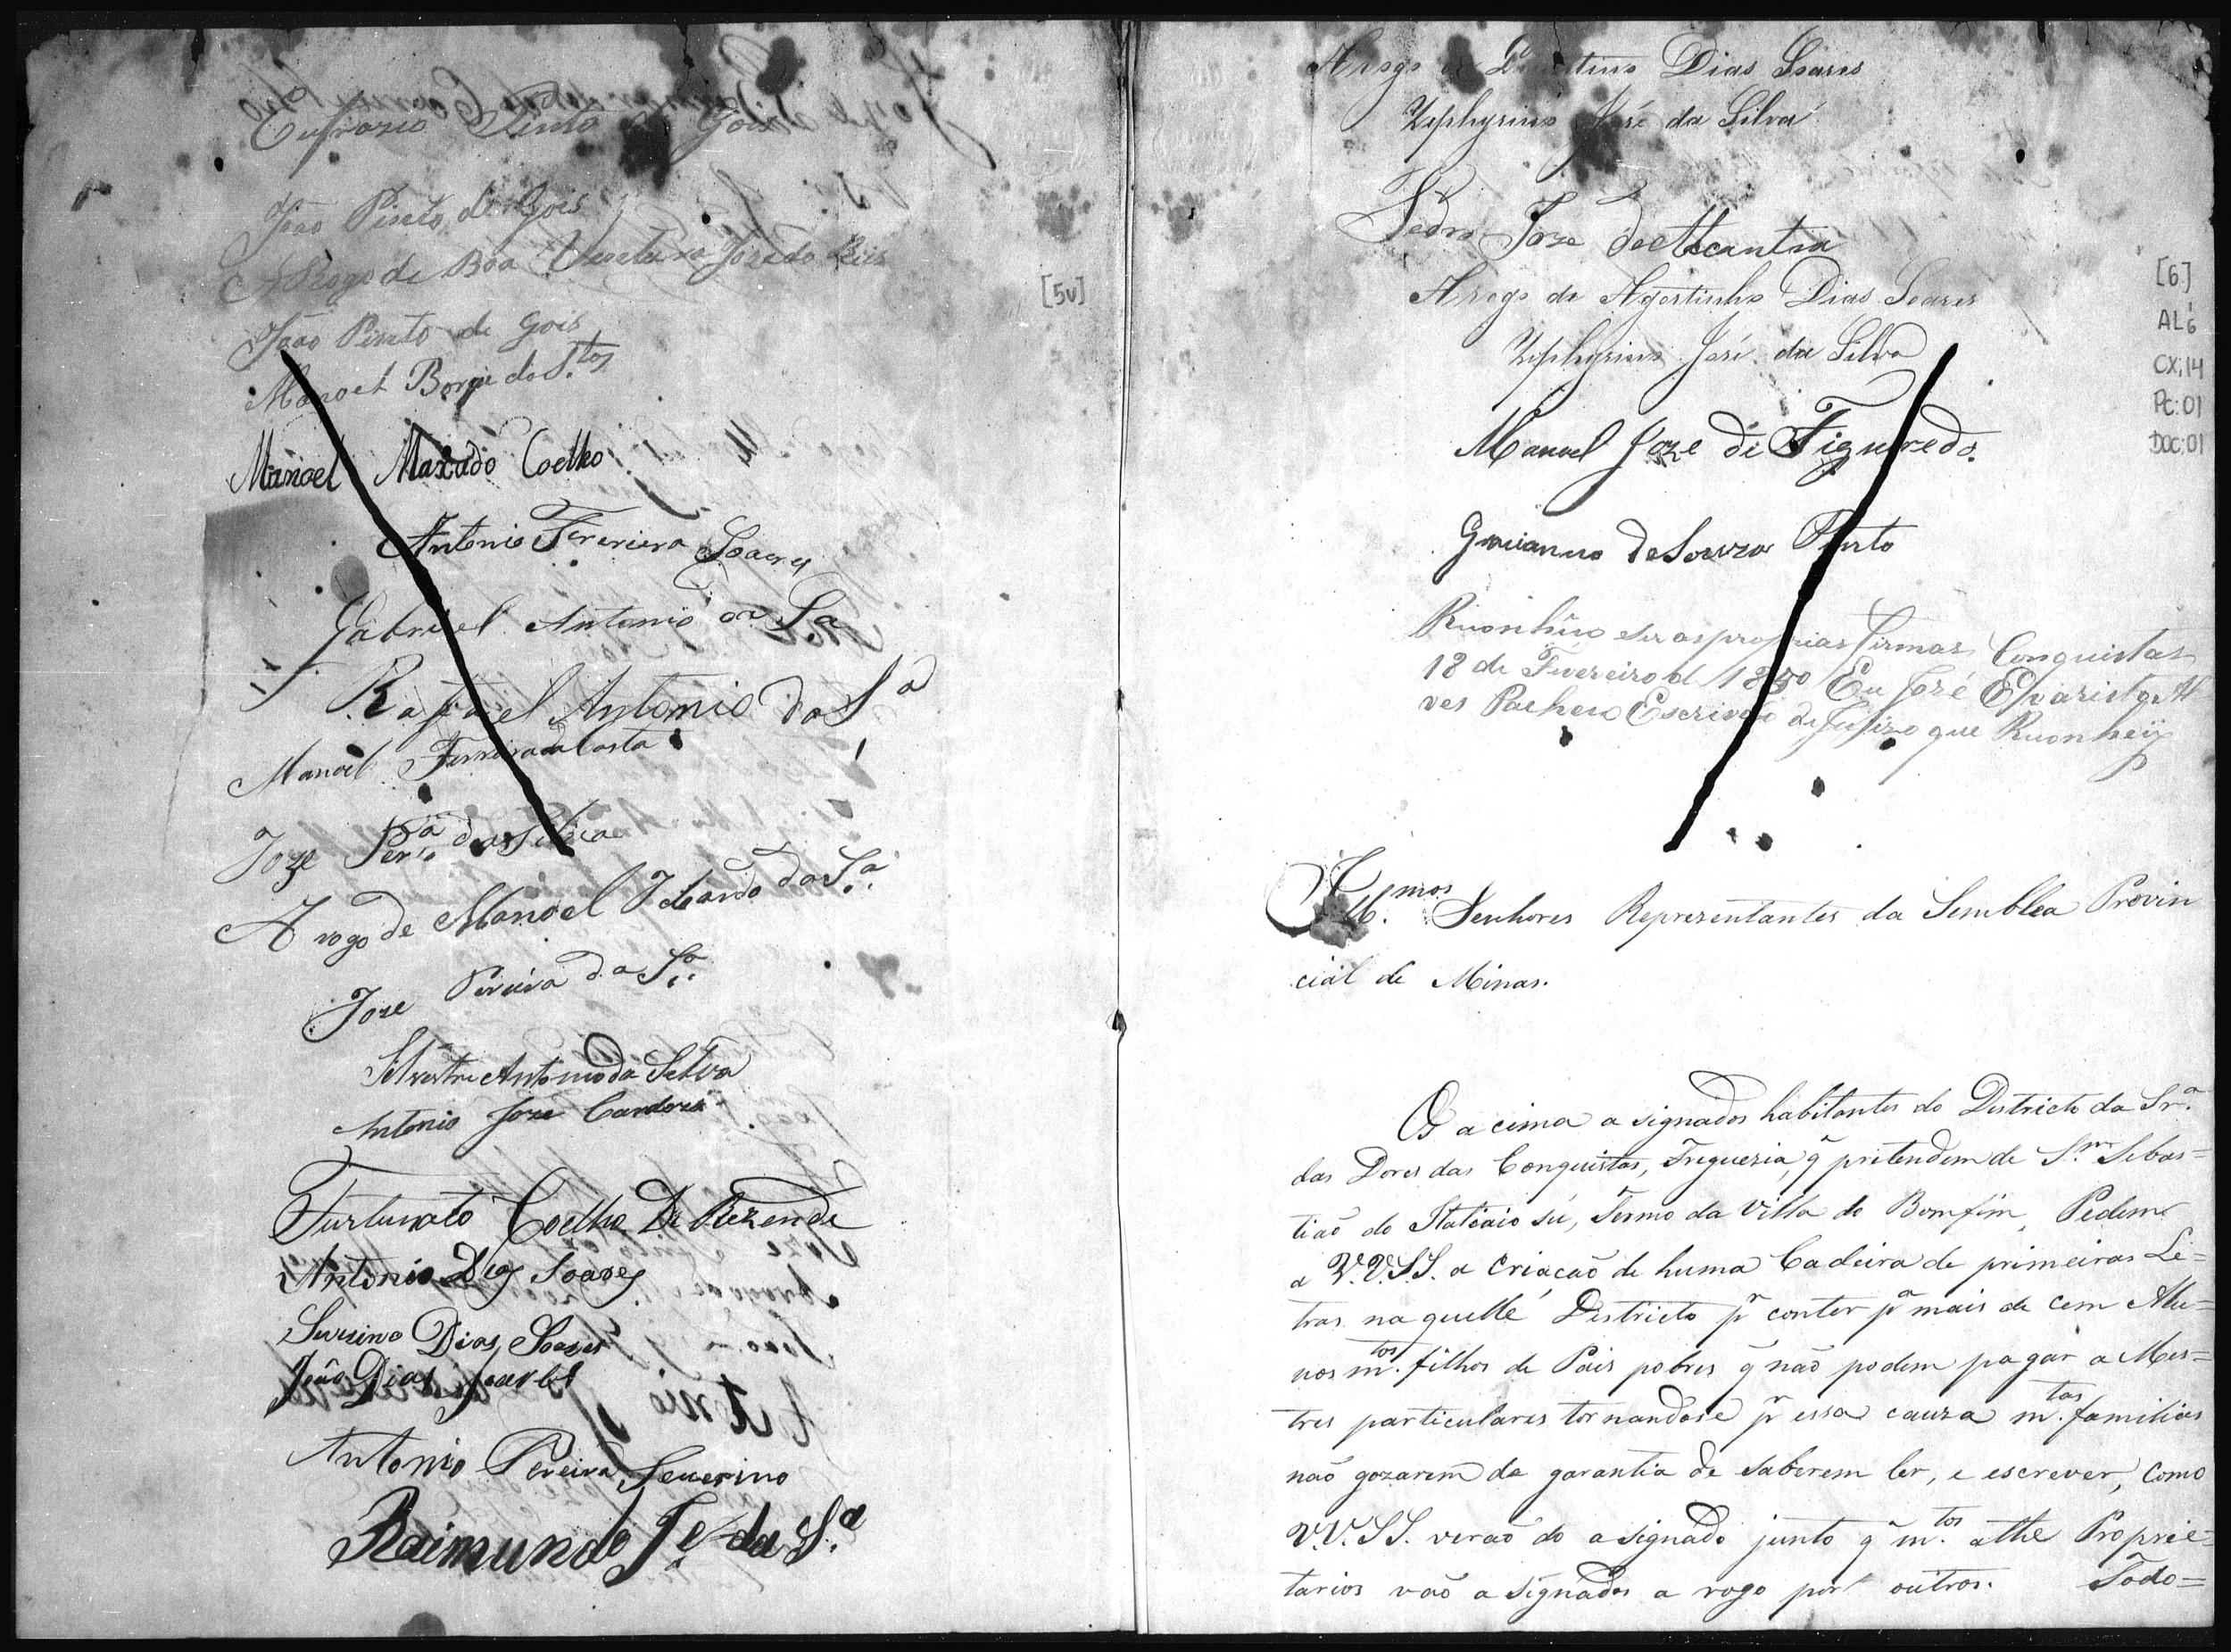 Eufrazio Pinto de Gois
João Pinto de Gois
A Rogo de Boa Ventura José do Reis
João Pinto de Gois
Manoel Borge do S.tos
Manoel Maxado Coelho
Antonio Fereriera Soares
Gabriel Antonio da Sa
Rafael Antonio da Sa
Manoel Ferreira da Costa
Joze Per.a da Silva
A rogo de Manoel da S.a
Joze Pereira da S.a
Silvestre Antonio da Silva
Antonio Joze Cardozo
Furtunato Coelho De Rezende
Antonio Dias Soares
Dias Soares
João Dias Soares
Antonio Pereira Severino
Raimundo Je da S.a
[5v]
A rogo de Dias Soares
Zephyrino José da Silva
Pedro Joze de Alcantra
A rogo de Agostinho Dias Soares
Zephyrino José da Silva
Manoel Joze de Figueredo.
de Souza Pinto
Riconhêco ser as proprias firmas Conquistas
18 de Fivereiro d 1850 Eu José Evaristo Al
ves Pacheco Escrivão de que Riconheij
[6]
AL.6
CX:14
PC:01
DOC:01
Ill.mos Senhores Representantes da Semblea Provin
cial de Minas.
Os a cima a signados habitantes do Districto da Sr.a
das Dores das Conquistas, Freguezia, q̃ pretendem de S.m Sebas=
tiaõ do Itatiaio sú, Termo da Villa do Bomfim, Pedem
a V.V.S.S. a criacaõ de huma Cadeira de primeiras Le=
tras naquelle Districto pr conter pa mais de cem Alu=
nos m.tos filhos de Pais pobres q̃ naõ podem pagar a Mes=
tres particulares tornandose pr essa cauza m.tas familias
naõ gozarem da garantia de saberem ler, e escrever, como
V.V.S.S. veraõ do asignado junto q̃ m.tos athe Proprie=
tarios vaõ a signados a rogo por outros. Todo=